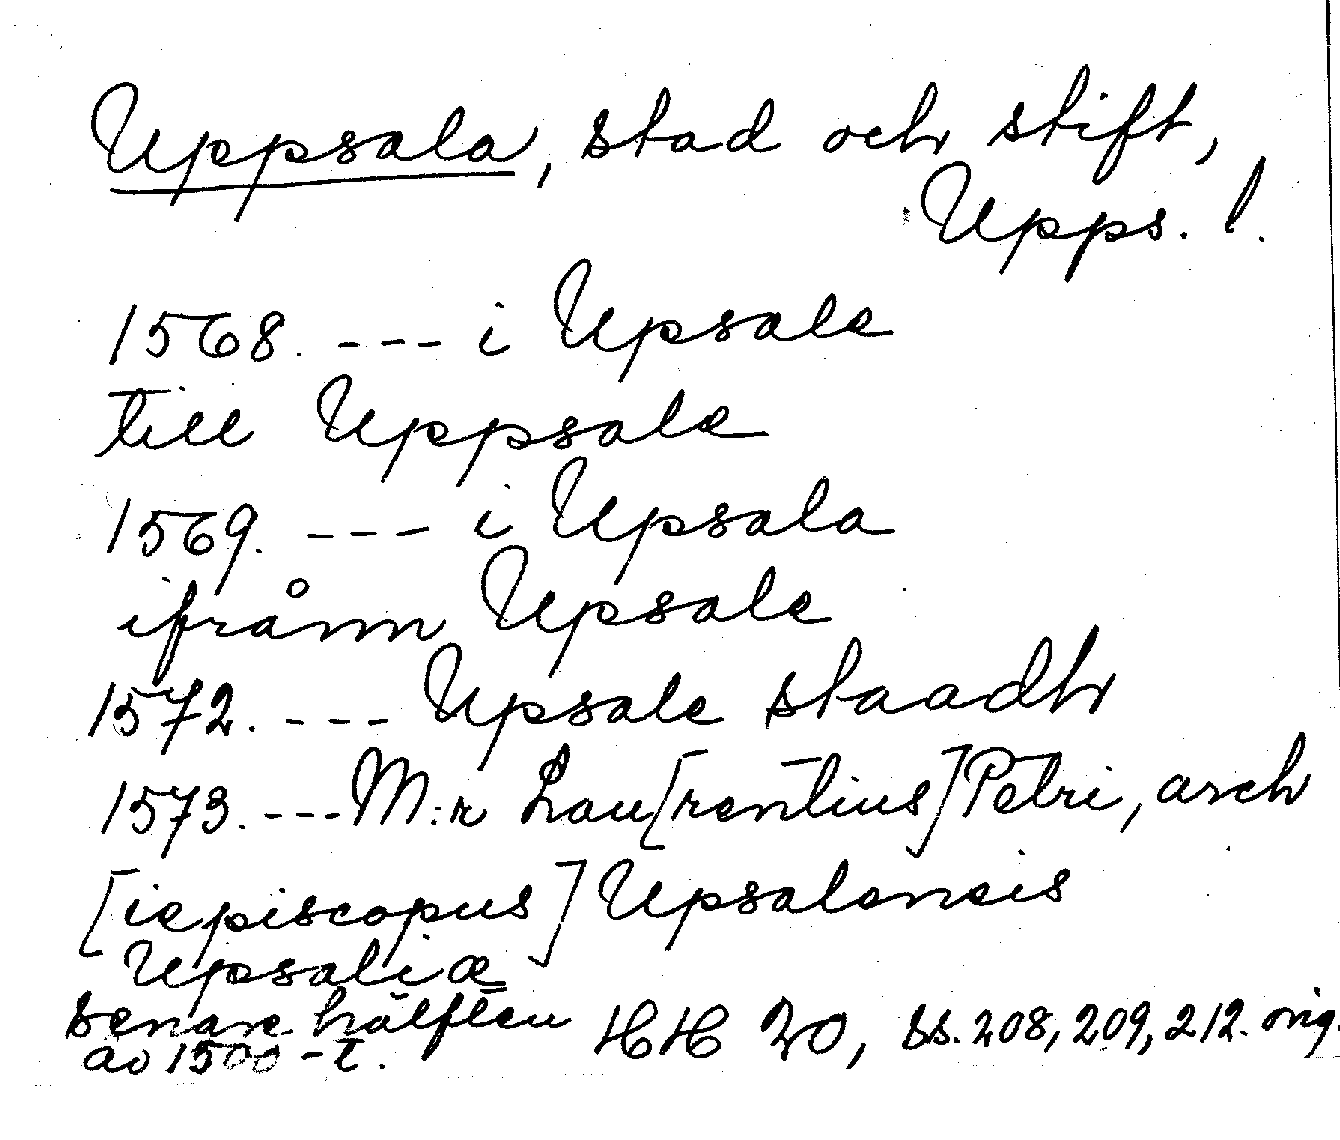 Uppsala, stad och stift,
Upps. l.
1568. --- i Upsale
till Uppsale
1569. --- i Upsala
ifrånn Upsale
1572. --- Upsale staadh
1573. --- M:r Lau[rentius] Petri, arch
[iepiscopus] Upsalensis
Upsaliæ
senare hälften
av 1500-t.
HH 20, ss. 208, 209, 212. orig.